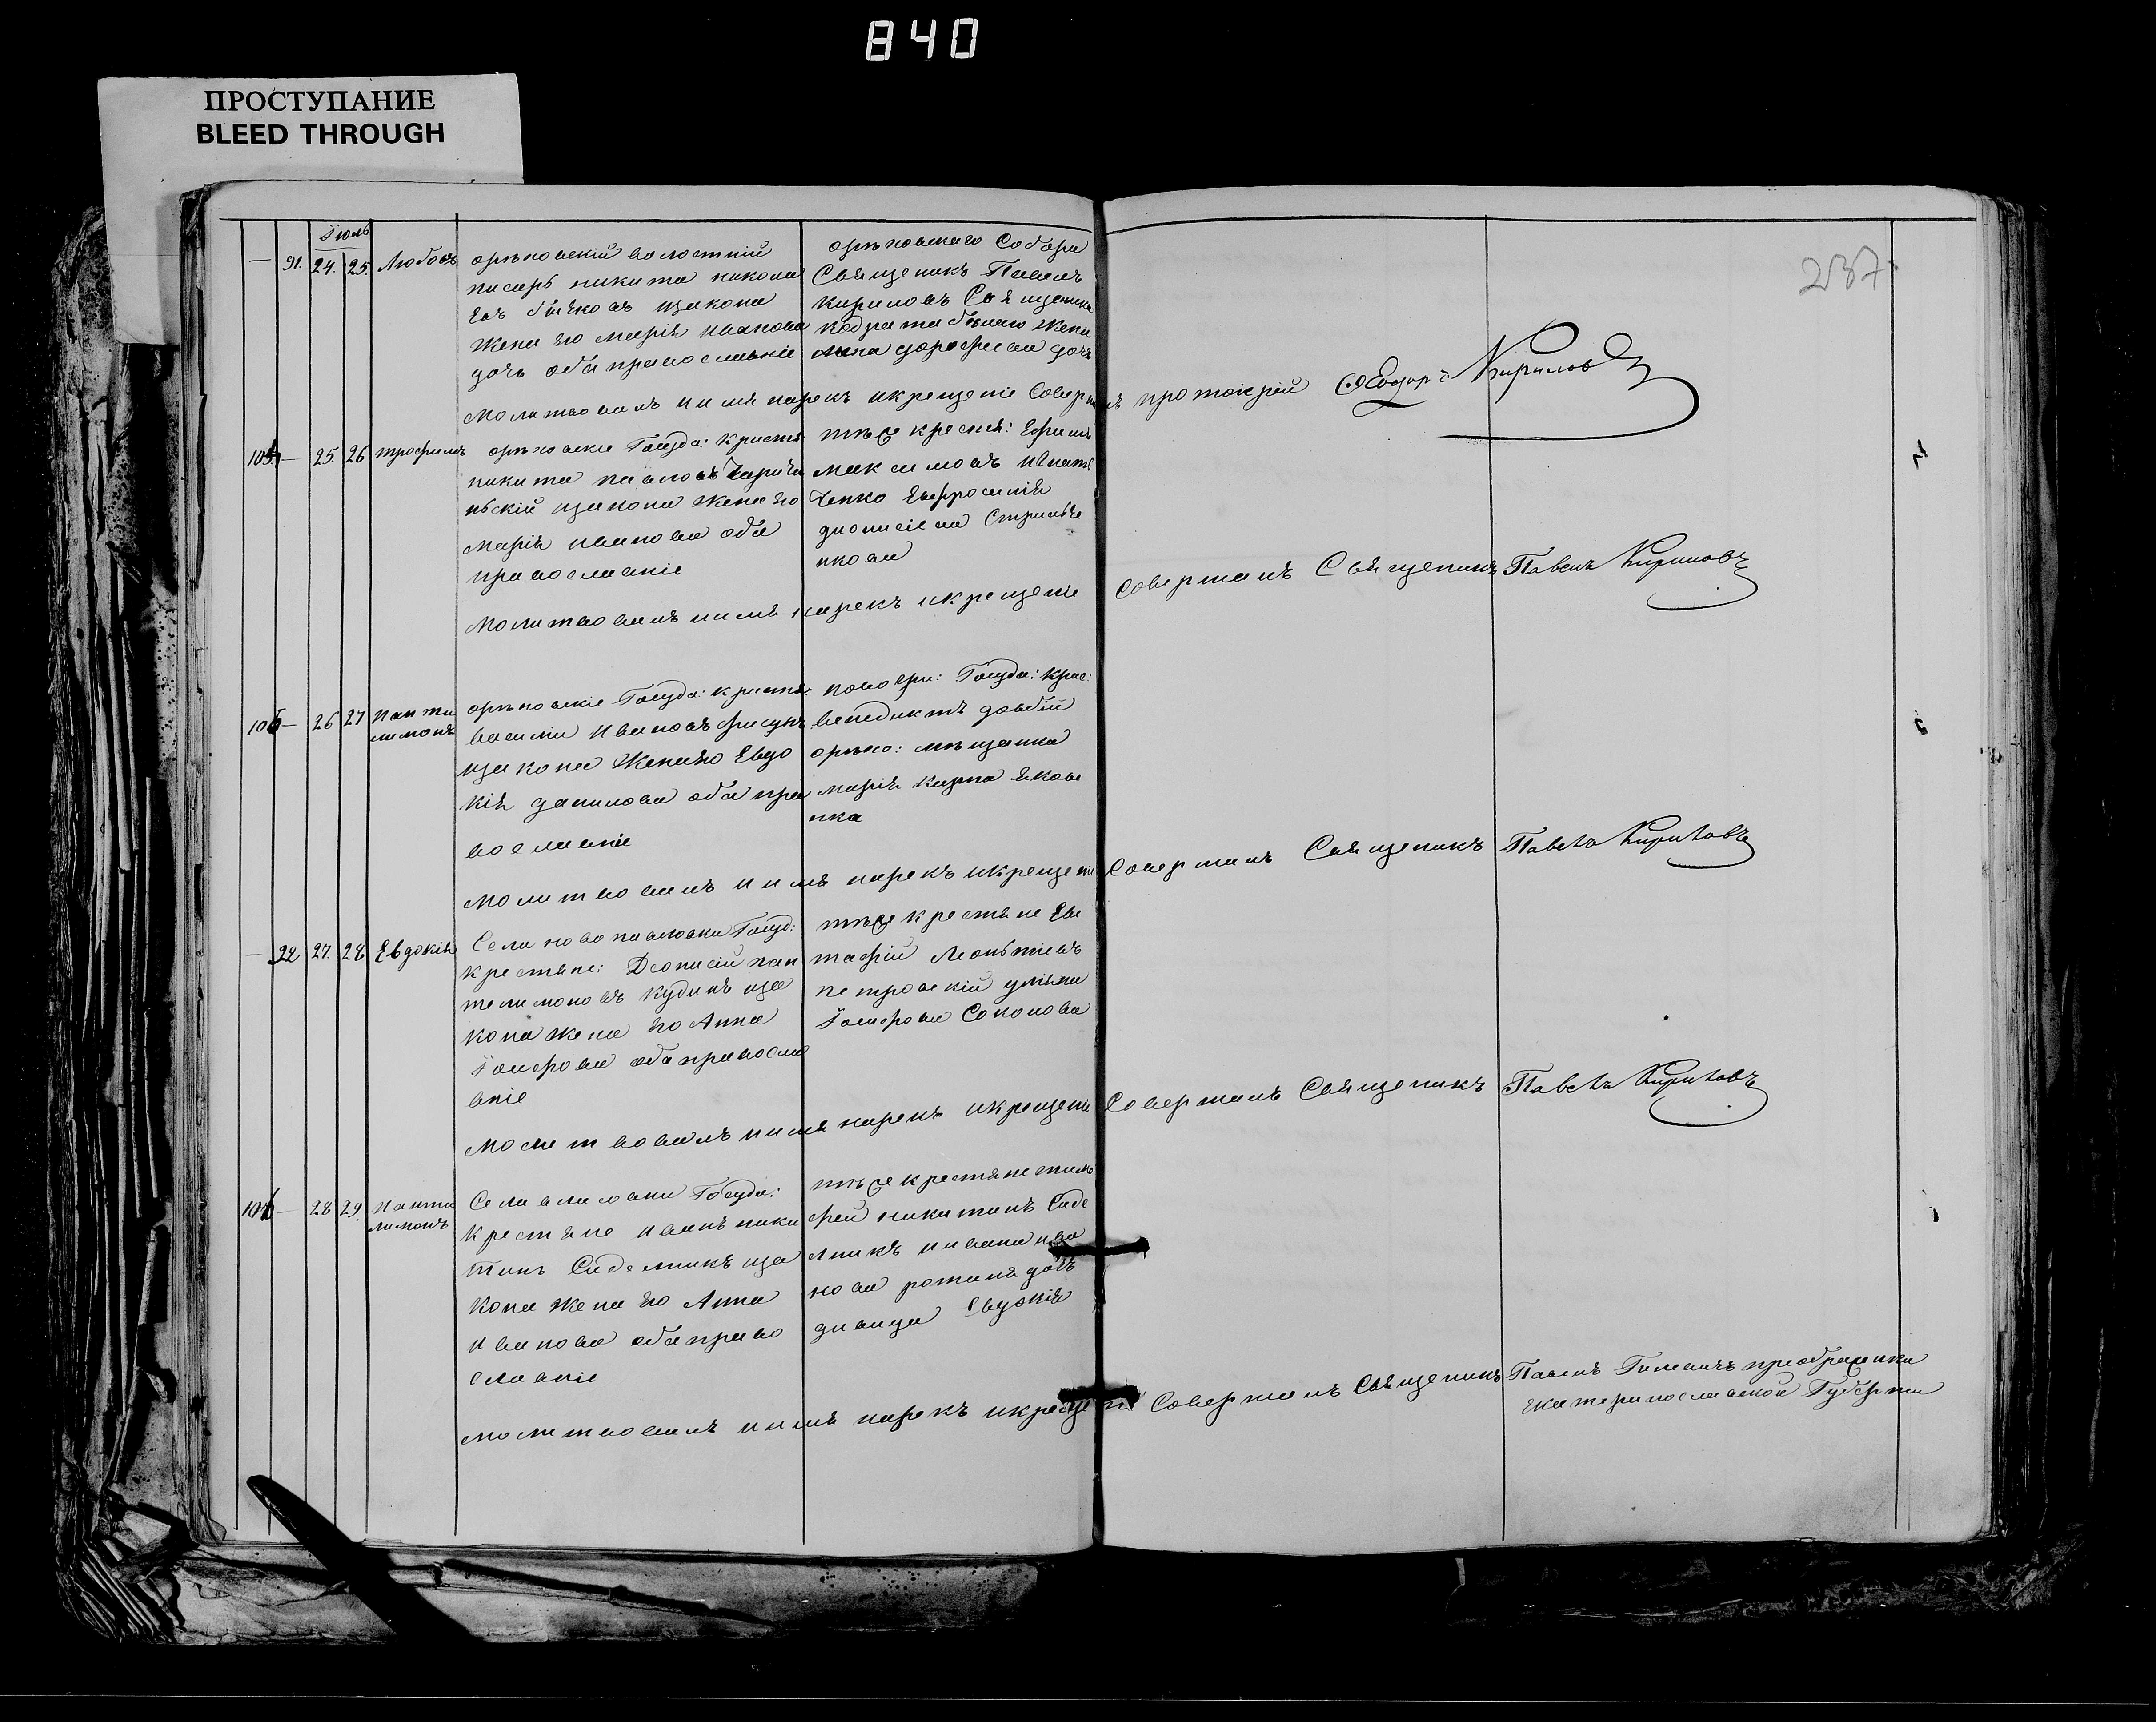 840
ПРОСТУПАНИЕ
BLEED THROUGH
237
Іюль
— 91. 24. 25 Любовь
орѣховскій волостній
писарь никита никола
евъ бычковъ изакона
жена его марія иванова
дочь оба православніе
орѣховскаго Собора
Священикъ Павелъ
кириловъ Священика
жена
анна дорофеева дочь
молитвовалъ имя нарекъ икрещеніе Совершилъ протоіерей Ѳеодоръ Кириловъ
— 25. 26 трофимъ
орѣховскіе Госуда: кристя
никита павловъ
нскій изакона жена его
марія иванова оба
православніе
тѣже крестя: Ефимъ
максимовъ игнатъ
ченко Евфросинія
дионисіева Стрилче
нкова
молитвовалъ имя нарекъ икрещеніе Совершилъ Священикъ Павелъ Кириловъ
— 26 27 Панти
лимонъ
орѣховскіе Госуда: кристя:
василь Ивановъ фисунъ
изакона жена его Евдо
кія данилова оба пра
вославніе
новогри: Госуда: крес:
венедиктъ довбій
орѣхо: мѣщанка
марія карпа якове
нка
молитвовалъ имя нарекъ икрещеніе Совершилъ Священикъ Павелъ Кириловъ
— 92 27. 28 Евдокія
Села новопавловки Госуд:
крестяне: Деонисій пан
телимоновъ кудинъ иза
кона жена его Анна
Іосифова оба правосла
вніе
тѣже крестяне Евс
тафій Леонтіевъ
петровскій уліяна
Іосифова Соколова
молитвовалъ имя нарекъ икрещеніе Совершилъ Священикъ Павелъ Кириловъ
106 — 28 29. Панти
лимонъ
Села Госуда:
крестяне иванъ ники
тинъ Сиделникъ иза
кона жена его Анна
иванова оба право
славніе
тѣже крестяне тимо
фей никитинъ Сиде
лникъ ивана
нова дочь
дивица Евдокія
молитвовалъ имя нарекъ икрещеніе Совершилъ Священикъ Павелъ преображенки
екатеринославской Губерніи